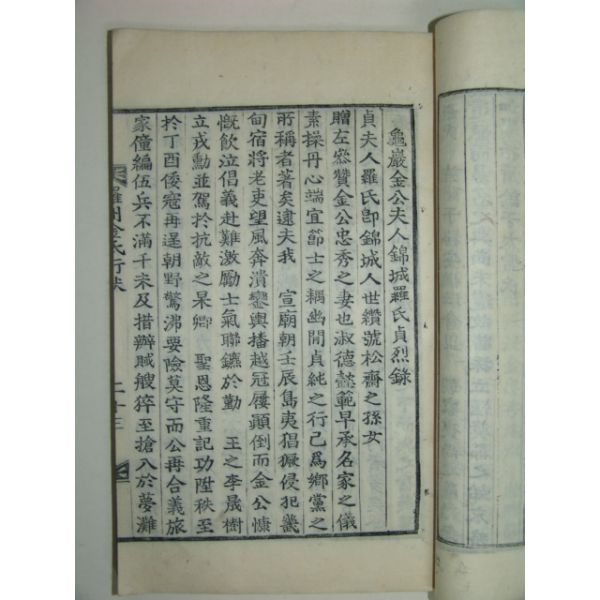 龜巖金公夫人錦城羅氏貞烈錄
貞夫人羅氏卽錦城人世纘號松齋之孫女
贈左叅贊金公忠秀之妻也淑德懿範早承名家之儀
素操丹心端宜節士之耦幽閒貞純之行己爲鄕黨之
所稱者著矣逮夫我 宣廟朝壬辰島夷猖獗侵犯畿
甸宿將老吏望風奔潰鑾輿播越冠屨顚倒而金公慷
慨飮泣倡義赴難激勵士氣聯鑣於勤 王之李晟樹
立戎勳並駕於抗敵之杲卿 聖恩隆重記功陞秩至
於丁酉倭寇再逞朝野驚沸要險莫守而公再合義旅
家僮編伍兵不滿千未及措辦賊艘猝至搶入於夢灘
羅州金氏行狀 二十三